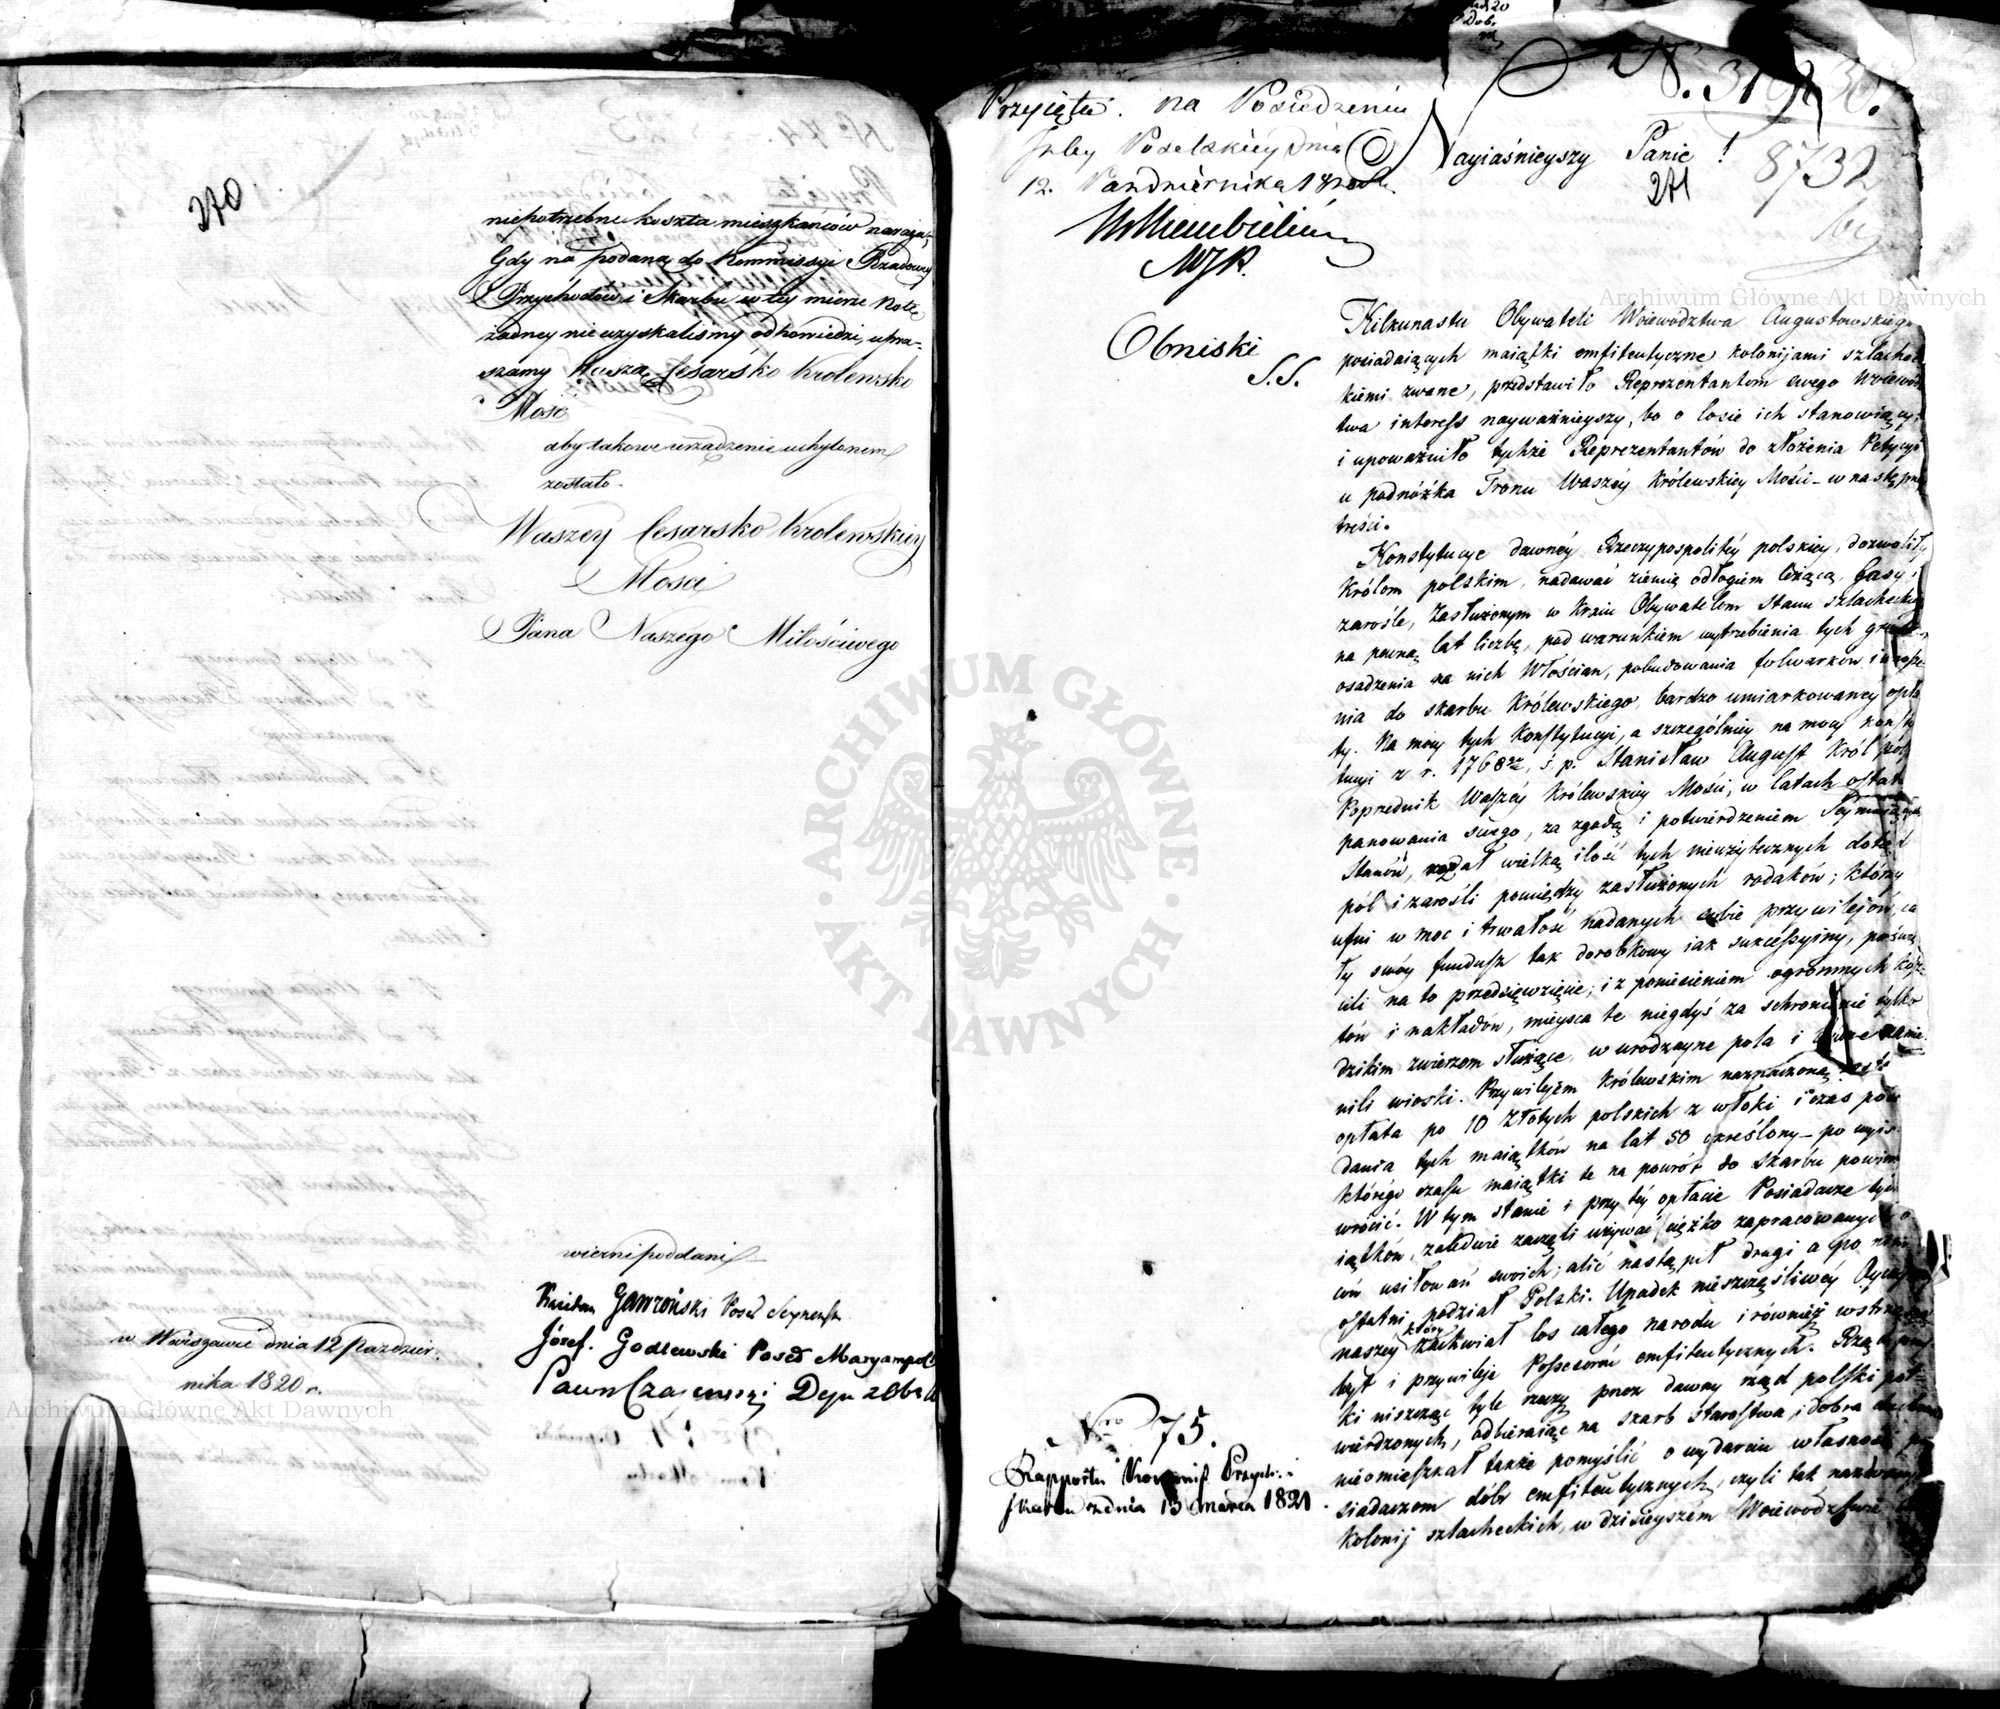 270
niepotrzebne koszta mieszkańców naraża,
Gdy na podaną do Kommissyi Rządowey
Przychodów i Skarbu w tey mierze Notę
żadney nie uzyskaliśmy odpowiedzi, upra-
szamy Waszą Cesarsko Krolewsko
Mość
aby takowe urządzenie uchylonem
zostało.
Waszey Cesarsko Krolewskiey
Mosci
Pana Naszego Miłościwego
wierni poddani
Gawroński Poseł Seyneński
Józef Godlewski Poseł Maryampol
w Warszawie dnia 12 Paździer-
nika 1820 r.
Przyięta na Posiedzeniu
Izby Poselskiey dnia
12. Pazdziernika 1820 r.
Obniski
S.S.
Nayiaśnieyszy Panie!
271
8732
Kilkunastu Obywateli Woiewództwa Augustowskiego
posiadaiących maiątki emfiteutyczne kolonijami szlachec
kiemi zwane, przedstawiło Reprezentantom swego Woiewódz
twa interess nayważnieyszy, bo o losie ich stanowiący;
i upoważniło tychże Reprezentantów do złożenia Petycyi
u podnóżka Tronu Waszéy Królewskiey Mości – w nastepney
treści.
Konstytucye dawnéy Rzeczypospolitéy polskiey, dozwoliły
Królom polskim, nadawać ziemię odłogiem leżącą, lasy i
zarośle, zasłużonym w Kraiu Obywatelom stanu szlacheckie
na pewną lat liczbę, pod warunkiem wytrzebienia tych grun
osadzenia na nich Włościan, pobudowania folwarków i
nia do skarbu Królewskiego, bardzo umiarkowaney opła
ty. Na mocy tych Konstytucyi, a szczególniey na mocy konsty
tucyi z r. 1768, ś. p. Stanisław August Król pols
Poprzednik Waszéy Królewskiey Mości, w latach ostat
panowania swego, za zgodą i potwierdzeniem Seymuiących
Stanów, rozdał wielką ilość tych nieużytecznych dotąd
pól i zarośli pomiędzy zasłużonych rodaków; którzy
ufni w moc i trwałość nadanych sobie przywilejów, ca
ły swóy fundusz tak dorobkowy iak sukcessyiny, poświę
cili na to przedsięwzięcie; i z poniesieniem ogromnych kosz
tów i nakładów, mieysca te niegdyś za schronienie tylko
dzikim zwierzom służące, w urodzayne pola i zamie
nili wioski. Przywilejem Królewskim naznaczoną
opłata po 10 Złotych polskich z włóki i czas posia
dania tych maiątków na lat 50 określony – po wyiś
którego czasu maiątki te na powrót do skarbu powinny
wrócić. W tym stanie i przy téy opłacie Posiadacze tych
iątków, zaledwie zaczęli używać ciężko zapracowanych o
ców usiłowań swoich; alić nastąpił drugi a po nim
ostatni podział Polski. Upadek nieszczęśliwéy Oyczyzny
naszey zachwiał los całego narodu i równiéy wstrząsnął
byt i przywileje Possessorów emfiteutycznych. Rząd prus
ki niszcząc tyle rzeczy przez dawny rząd polski pot-
wierdzonych, odbieraiąc na skarb starostwa i dobra duchowne
nieomieszkał także pomyślić o wydarciu własności po
siadaczom dóbr emfiteutycznych, czyli tak nazwanych
Kolonij szlacheckich, w dzisieyszém Woiewództwie
Nro 75.
Rapportu Kommiss. Przych. i
Skarbu z dnia 13 Marca 1821
Archiwum Główne Akt Dawnych
ARCHIWUM GŁÓWNE · AKT DAWNYCH ·
Archiwum Główne Akt Dawnych